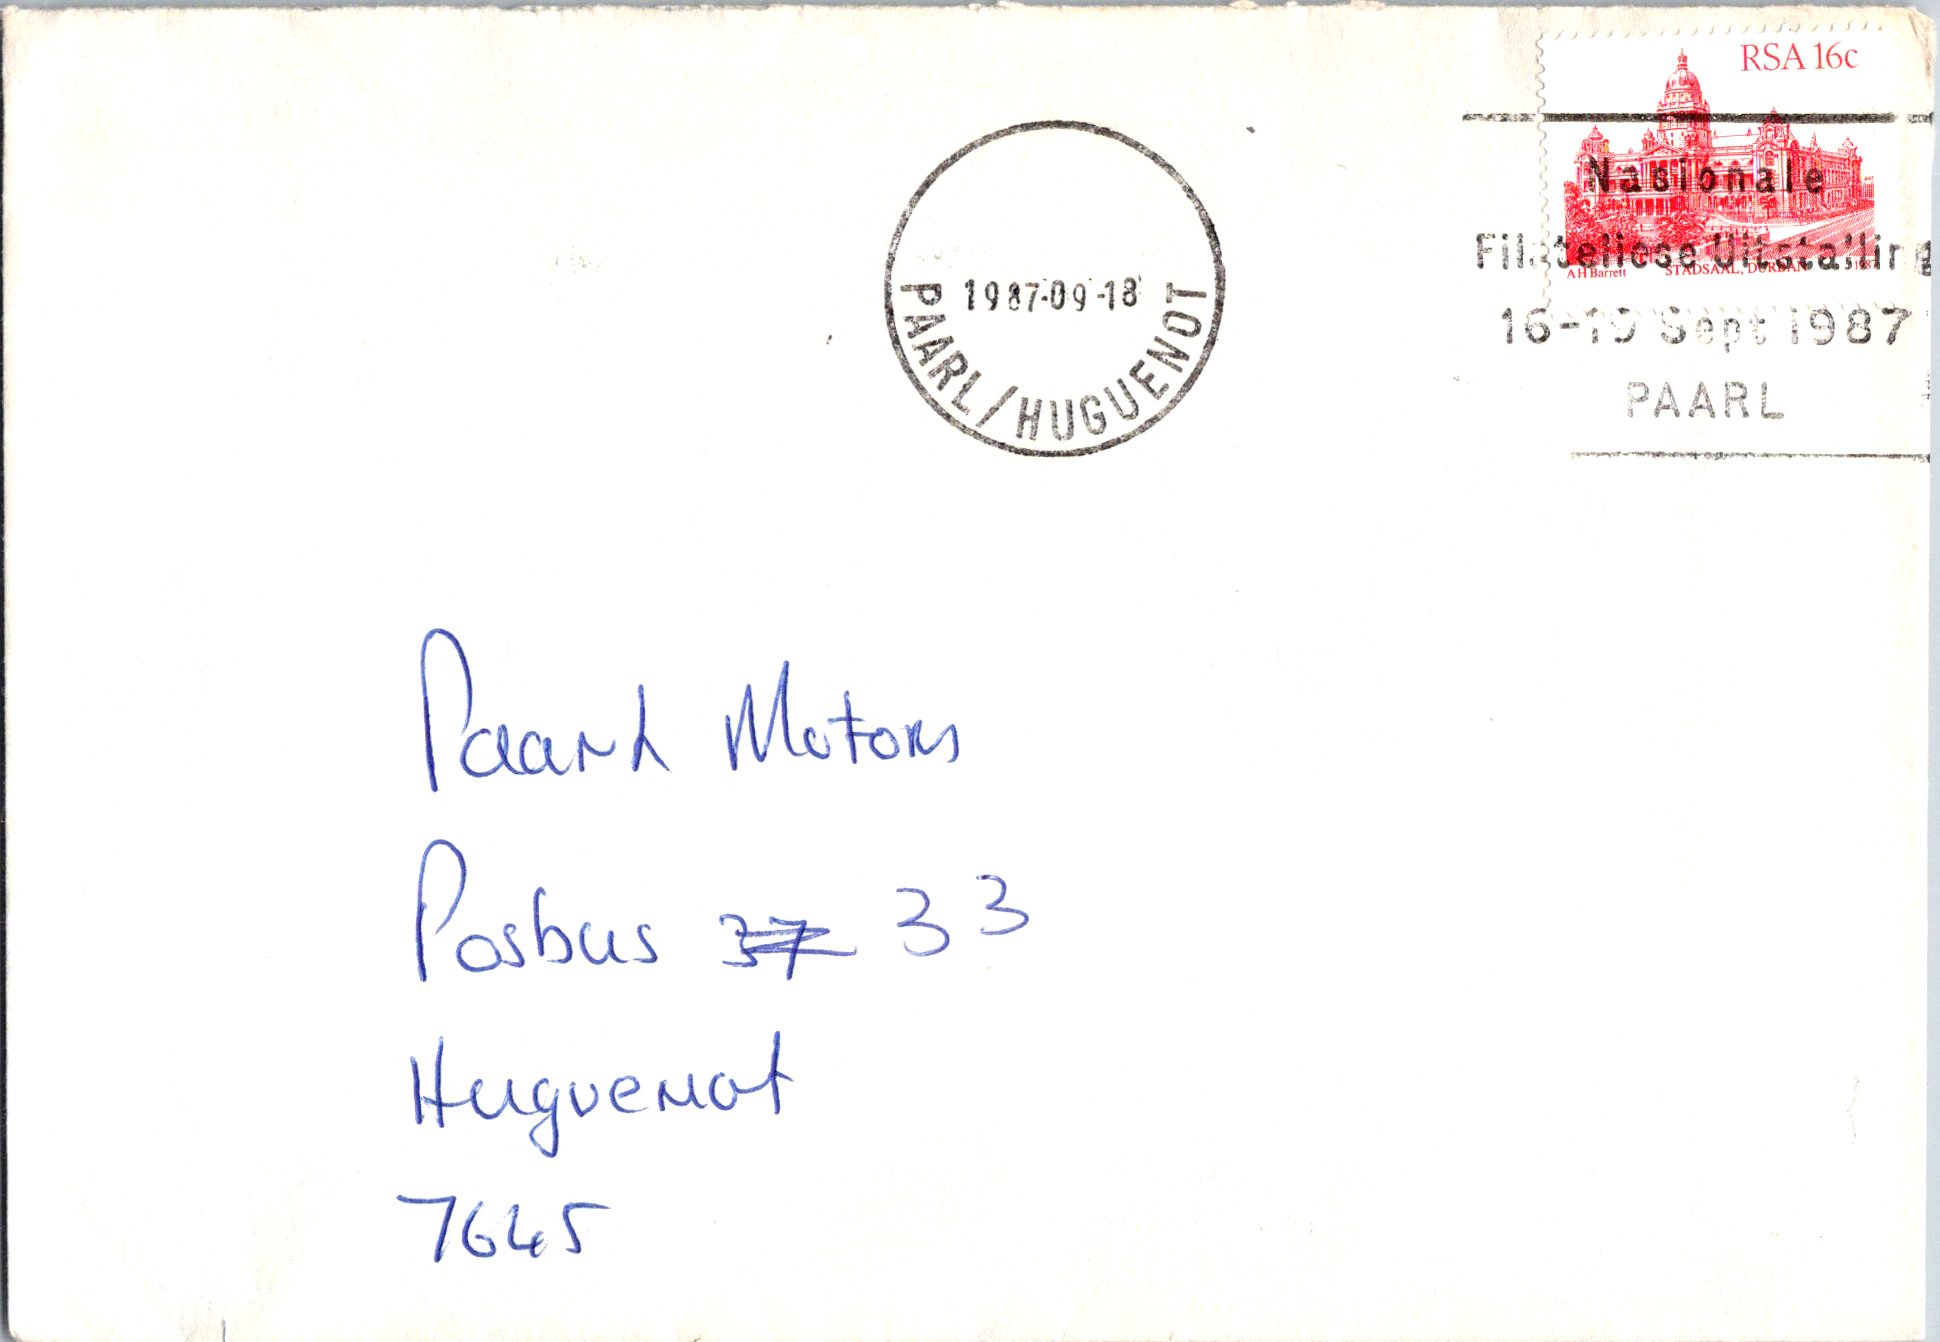 RSA 16c
Nasionale
Filateliese Uitstalling
AH Barrett STADSAAL, DURBAN 1987
16-19 Sept 1987
PAARL
1987-09-18
PAARL/HUGUENOT
Paarl Motors
Posbus 37 33
Huguenot
7645